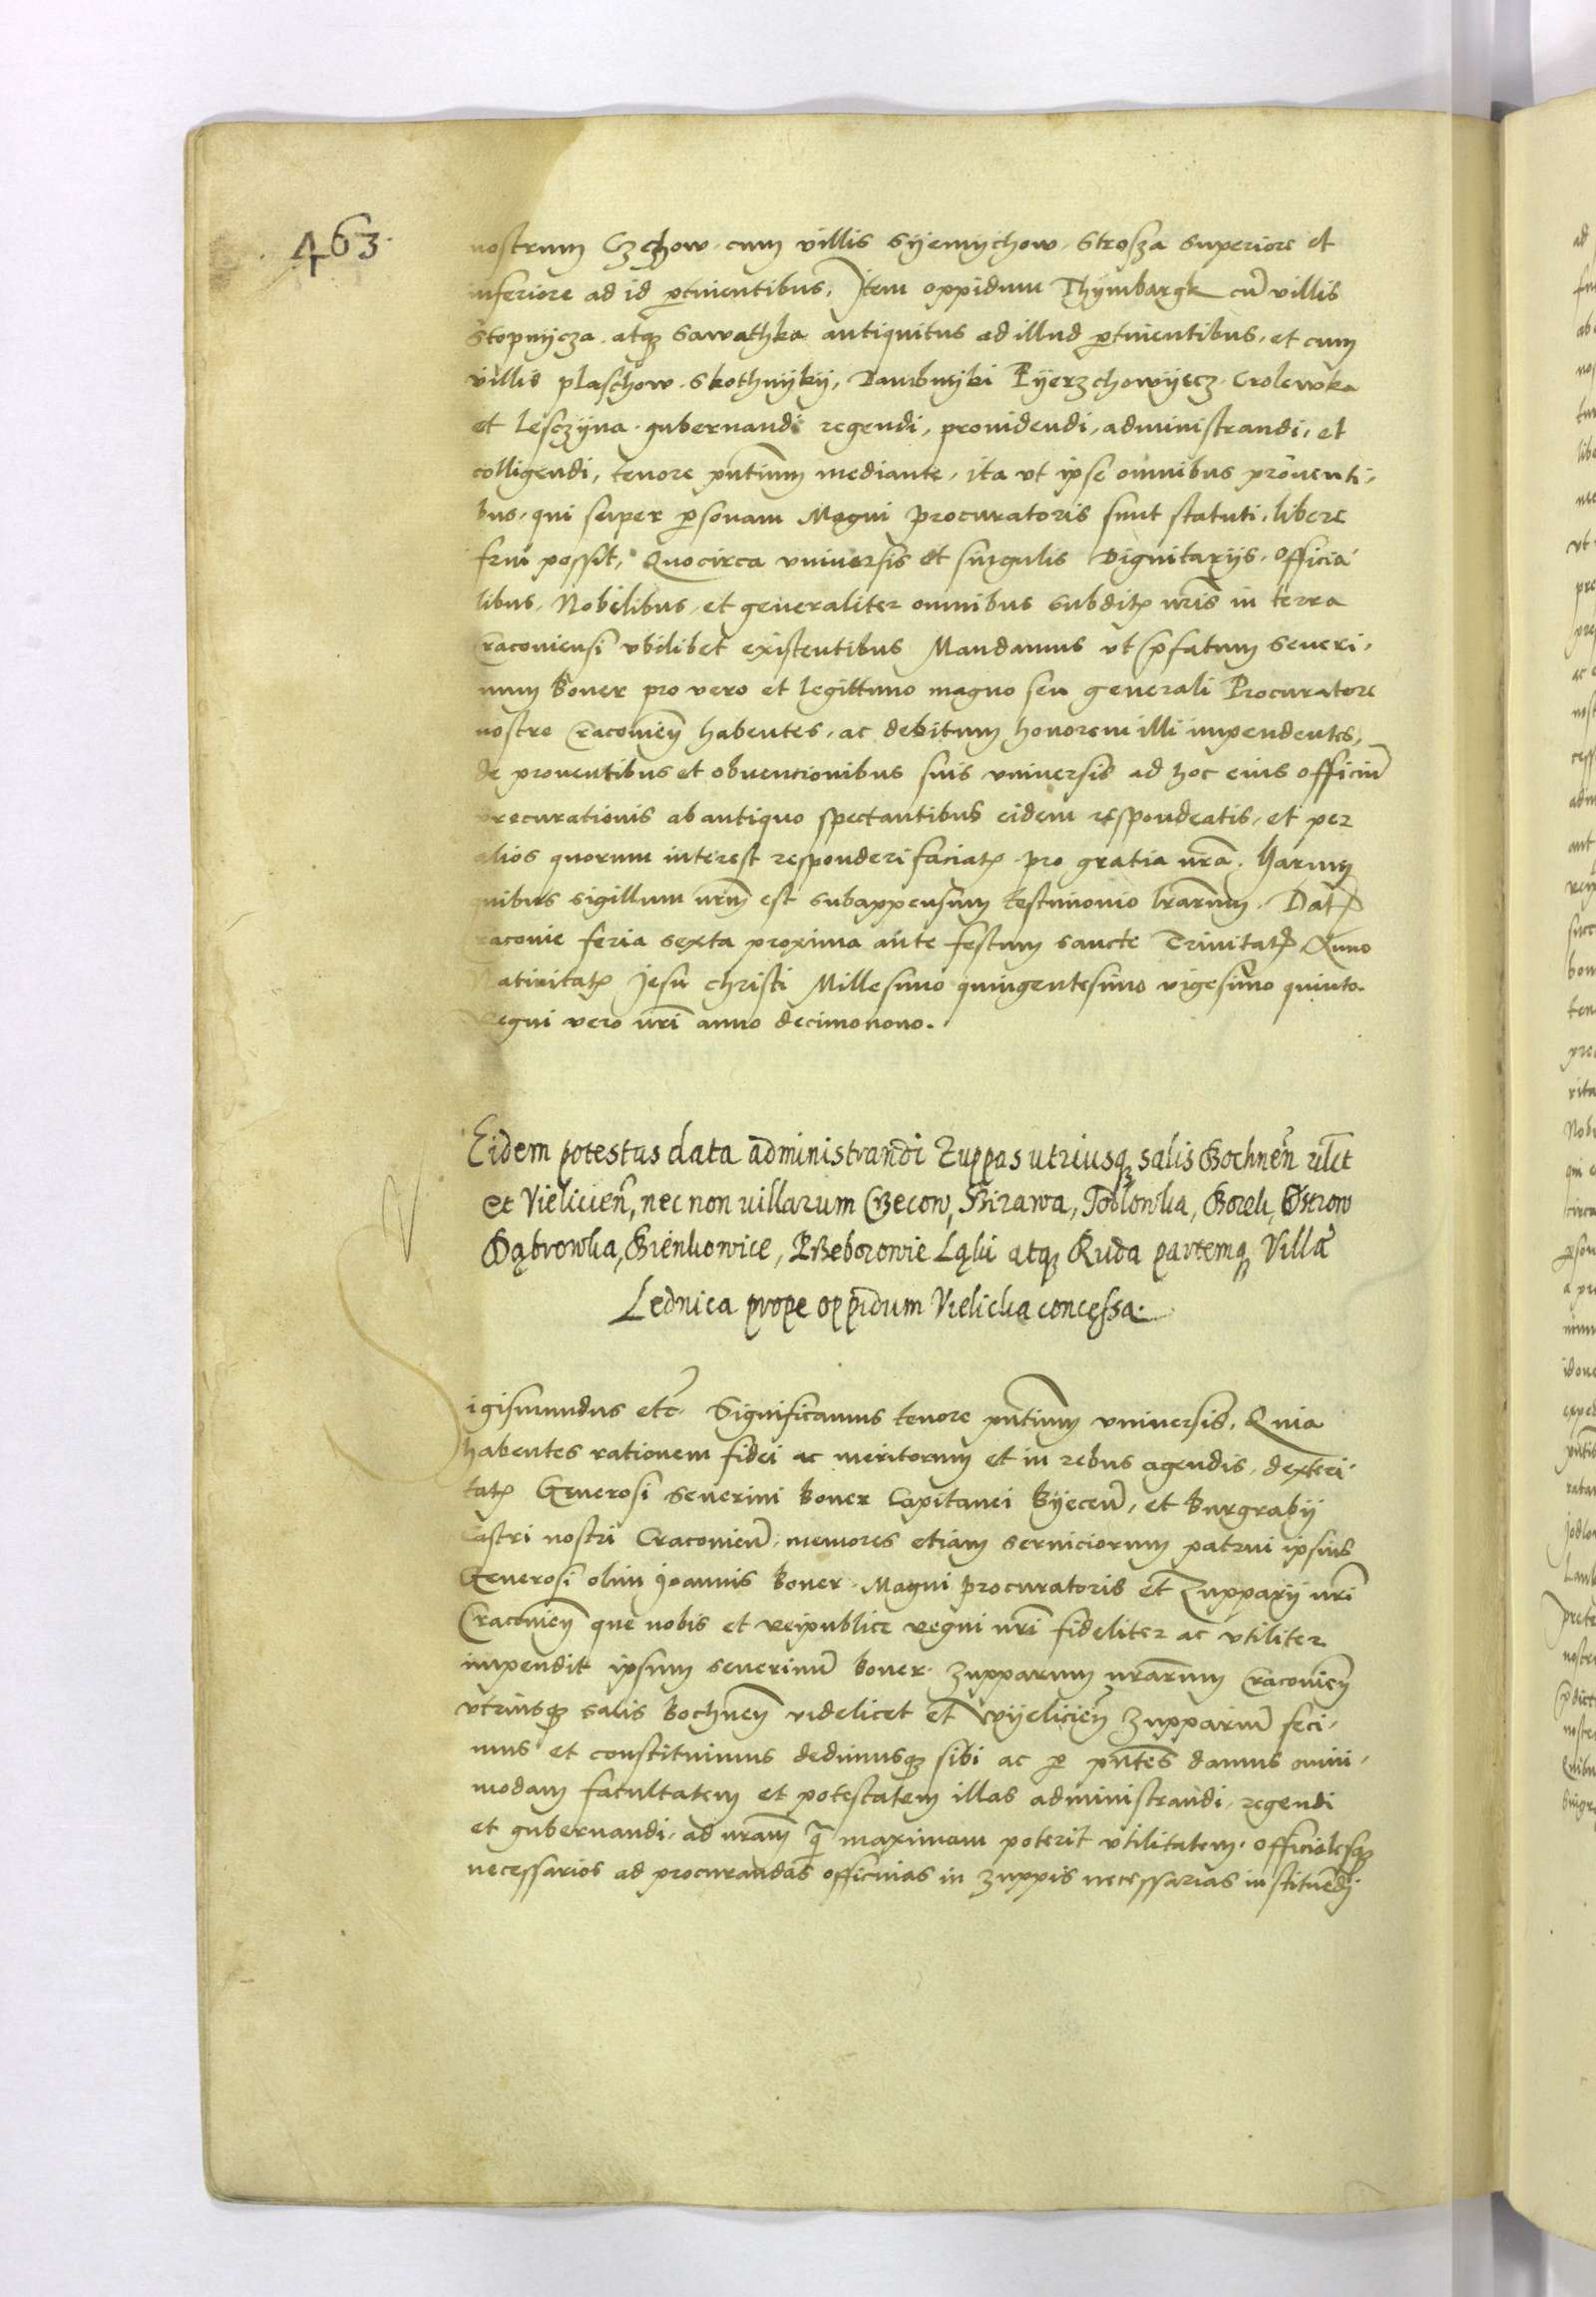 463.
nostrum Czchow. cum villis Syemychow. Strosza superiore et
inferiore ad id ptinentibus, Item oppidum Thymbargk cū villis
Stopnycza. atq Sawathka antiquitus ad illud ptinentibus, et cum
villis plaschow. Skothnyky, Dambnyki Pyerzchowyecz. Crolewka
et lesczyna. gubernandi regendi, prouidendi, administrandi, et
colligendi, tenore pntium mediante, ita vt ipse omnibus prouenti,
bus, qui super psonam Magni procuratoris sunt statuti, libere
frui possit, Quocirca vniuersis et singulis Dignitarijs. officia
libus. Nobilibus, et generaliter omnibus subdit nris in terra
Craconiensi vbilibet existentibus Mandamus vt pfatum Seueri,
num boner pro vero et legittimo magno seu generali Procuratore
nostro Craconien habentes, ac debitum honorem illi impendentes,
de prouentibus et obuencionibus suis vniuersis ad hoc eius officiū
procurationis ab antiquo spectantibus eidem respondeatis, et per
alios quorum interest responderi faciat. pro gratia nra. harum
quibus sigillum nrm est subappensum testimonio lrarum. Dat
Craconie feria sexta proxima ante festum sancte Trinitat Anno
Natiuitat Jesu christi Millesimo quingentesimo vigesimo quinto.
Regni vero nri anno decimonono.
Eidem potestas data administrandi Zuppas utriusq salis Bochnen vlct
et Vielicien, nec non uillarum Becow, Birawa, Jodlowka, Borek, Ostrow
Dąbrowka, Bienkowice, Pżeborowie Ląki atq Ruda partemq Villæ
Lednica prope oppidum Vielicka concessa.
igismundus etc. Significamus tenore pntium vniuersis. Quia
habentes rationem fidei ac meritorum et in rebus agendis, dexteri,
tat Generosi Seuerini boner Capitanei Byecen, et burgrabij
Castri nostri Craconien. memores etiam seruiciorum patrui ipsius
Generosi olim Joannis boner. Magni procuratoris et Zupparij nri
Craconien que nobis et reipublice regni nri fideliter ac vtiliter
impendit ipsum Seuerinū boner. Zupparum nrarum Craconien
vtriusq salis bochnen videlicet et Wyelicien Zupparium feci,
mus et constituimus dedimusq sibi ac p pntes damus omni,
modam facultatem et potestatem illas administrandi, regendi
et gubernandi, ad nram q maximam poterit vtilitatem. officialesq
necessarios ad procurandas officinas in Zuppis necessarias instituēdi